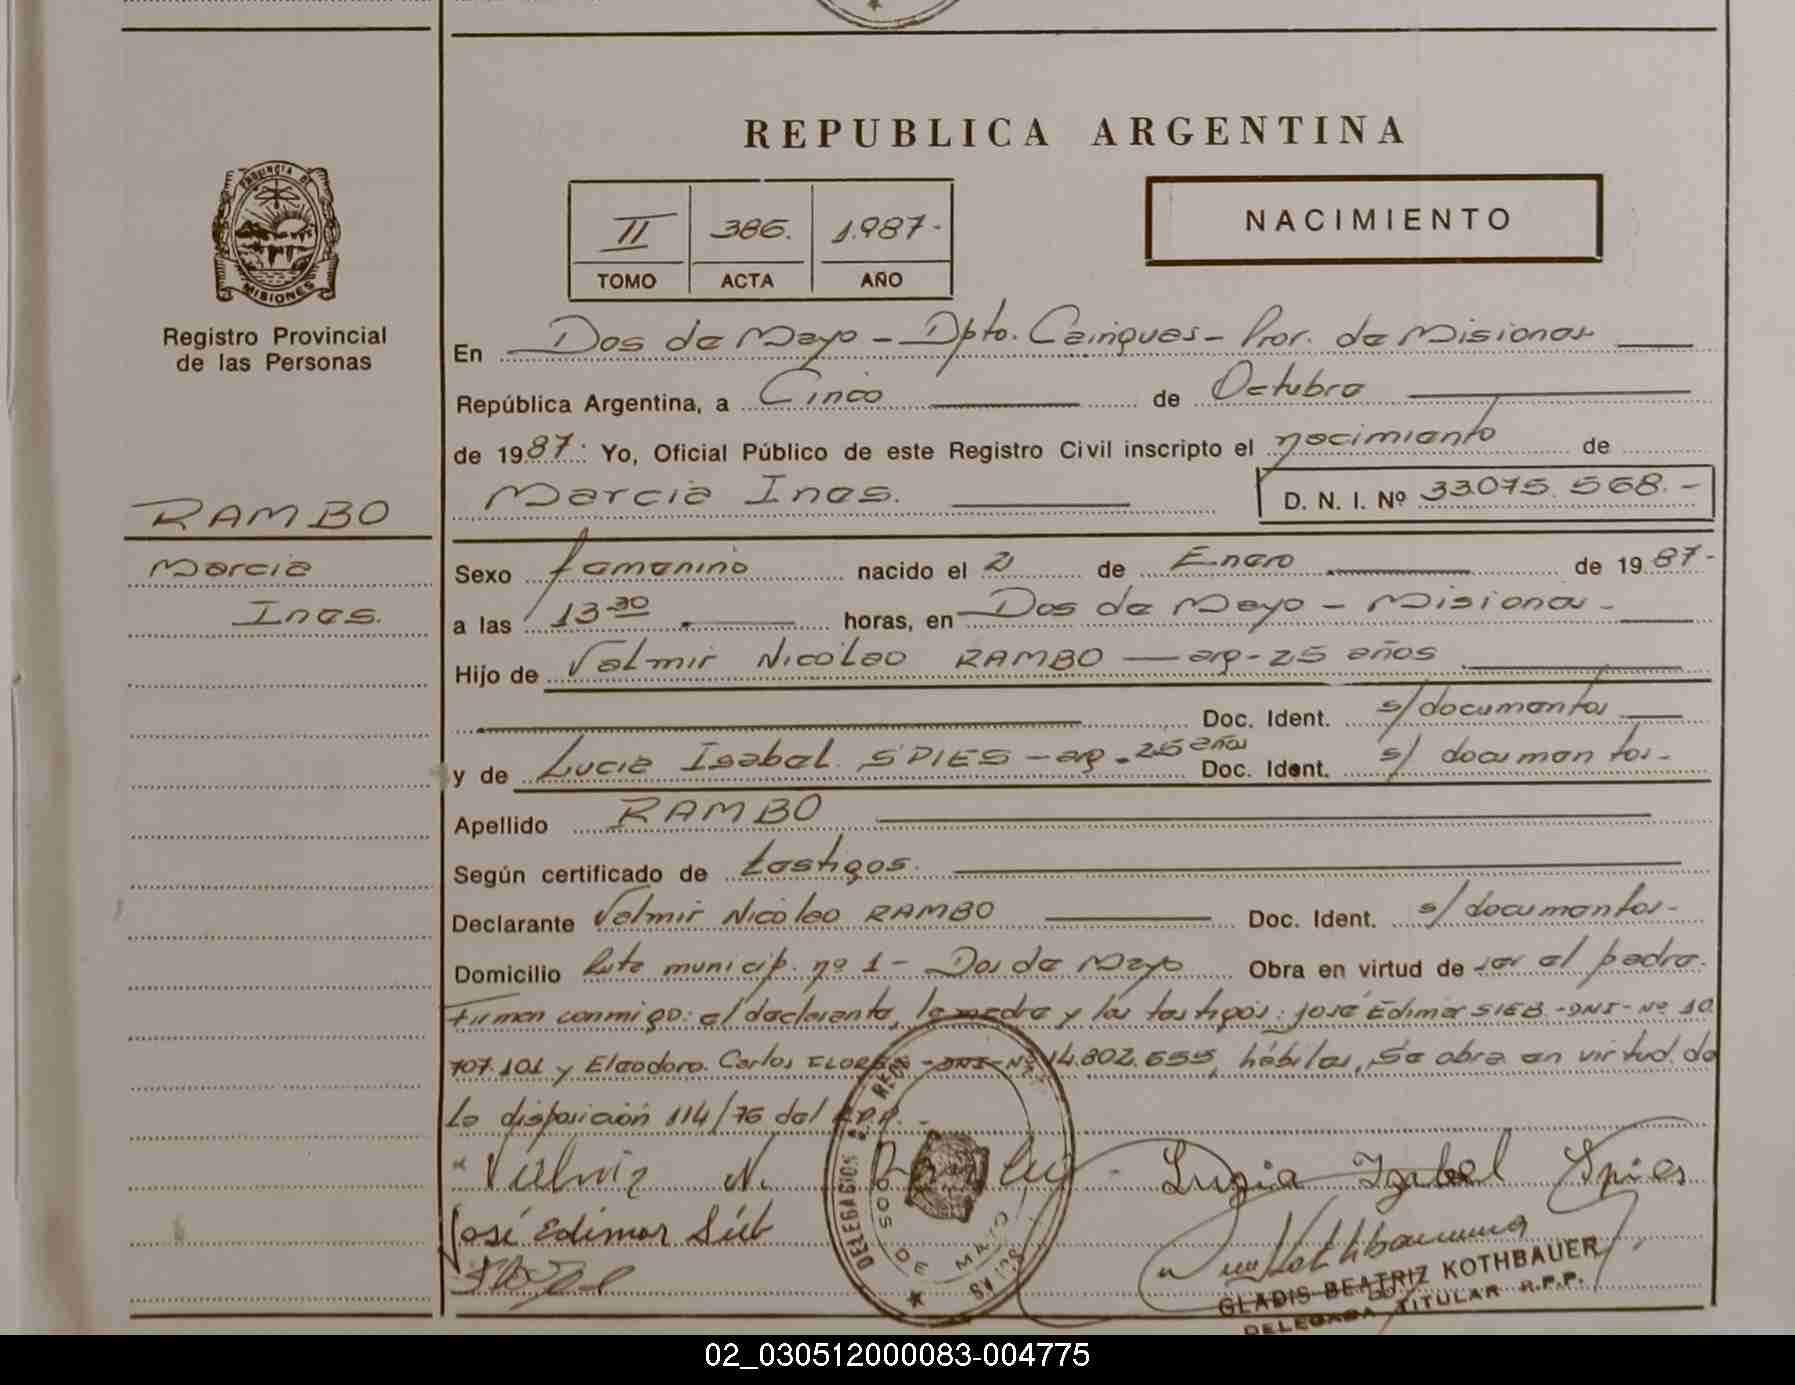 REPUBLICA ARGENTINA
PROVINCIA DE
MISIONES
Registro Provincial
de las Personas
II 386. 1.987.-
TOMO ACTA AÑO
NACIMIENTO
En Dos de Mayo - Dpto. Cainguas - Prov. de Misiones
República Argentina, a Cinco de Octubre
de 1987: Yo, Oficial Público de este Registro Civil inscripto el nacimiento de
Marcia Ines. D. N. I. Nº 33.075.568.-
RAMBO
Marcia
Ines.
Sexo femenino nacido el 2 de Enero de 1987-
a las 13-30 horas, en Dos de Mayo - Misiones -
Hijo de Valmir Nicolao RAMBO — arg - 25 años
Doc. Ident. s/documentos
y de Lucia Isabel SPIES - arg - 25 años Doc. Ident. s/ documentos.-
Apellido RAMBO
Según certificado de testigos.
Declarante Valmir Nicolao RAMBO Doc. Ident. s/documentos-
Domicilio Ruta municip. nº 1 - Dos de Mayo Obra en virtud de ser el padre.
Firman conmigo: el declarante, la madre y los testigos: José Edimar SIEB -DNI- Nº 10
707.101 y Eleodoro Carlos FLORES - DNI- Nº 14.802.655, hábiles, Se obra en virtud de
la disposición 114/76 del R.P.P.-
Valmir N. Luzia Izabel Spies
José Edimar Sieb
DELEGACION
DOS DE MAYO
GLADIS BEATRIZ KOTHBAUER
DELEGADA TITULAR R.P.P.
02_030512000083-004775